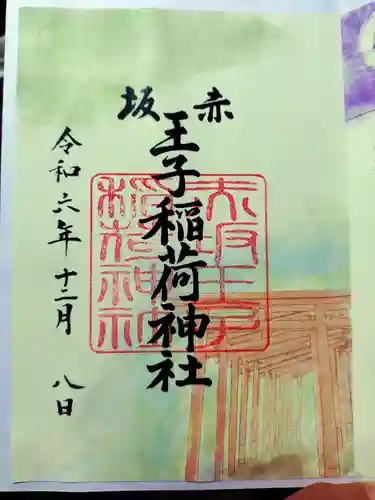 赤坂
王子稲荷神社
赤坂王子
稲荷神社
令和六年十二月八日